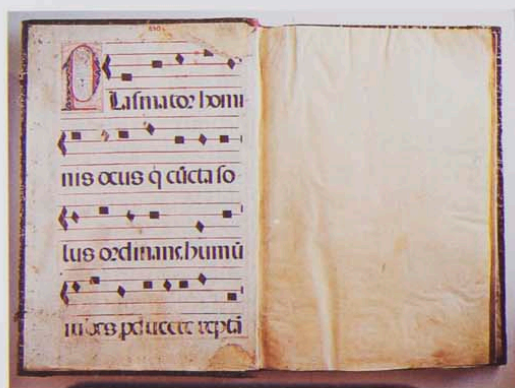 Plasmator homi
nis deus q̇ cūcta so
lus ordinans humū
iubes producere rept̄i